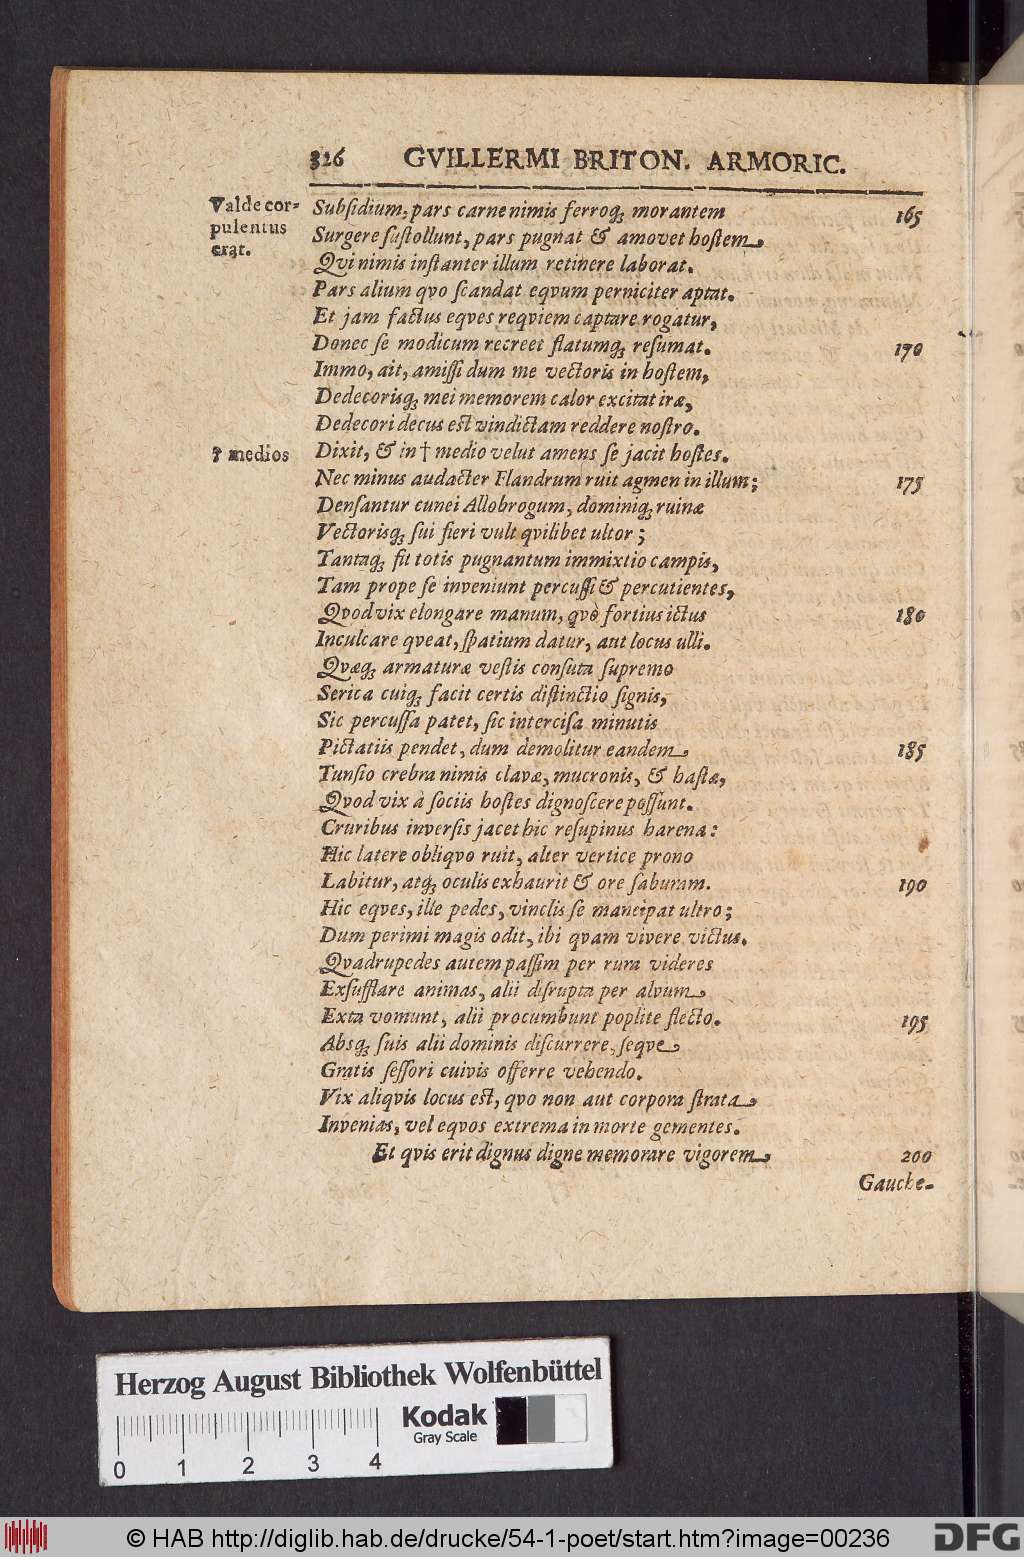 326 GVILLERMI BRITON. ARMORIC.
Valde cor-
pulentus
erat.
Subſidium, pars carne nimis ferroq́ꝫ morantem 165
Surgere ſuſtollunt, pars pugnat & amovet hoſtem,
Qvi nimis inſtanter illum retinere laborat.
Pars alium qvo ſcandat eqvum perniciter aptat.
Et jam factus eqves reqviem captare rogatur,
Donec ſe modicum recreet flatumqꝫ reſumat. 170
Immo, ait, amiſſi dum me vectoris in hoſtem,
Dedecorisqꝫ mei memorem calor excitat iræ,
Dedecori decus eſt vindictam reddere noſtro.
† medios
Dixit, & in † medio velut amens ſe jacit hoſtes.
Nec minus audacter Flandrum ruit agmen in illum; 175
Denſantur cunei Allobrogum, dominiqꝫ ruinæ
Vectorisqꝫ ſui fieri vult qvilibet ultor;
Tantaqꝫ fit totis pugnantum immixtio campis,
Tam prope ſe inveniunt percuſſi & percutientes,
Qvod vix elongare manum, qvò fortius ictus 180
Inculcare qveat, ſpatium datur, aut locus ulli.
Qvæqꝫ armaturæ veſtis conſuta ſupremo
Serica cuiqꝫ facit certis diſtinctio ſignis,
Sic percuſſa patet, ſic interciſa minutis
Pictatiis pendet, dum demolitur eandem 185
Tunſio crebra nimis clavæ, mucronis, & haſtæ,
Qvod vix à ſociis hoſtes dignoſcere poſſunt.
Cruribus inverſis jacet hic reſupinus harena:
Hic latere obliqvo ruit, alter vertice prono
Labitur, atqꝫ oculis exhaurit & ore ſaburam. 190
Hic eqves, ille pedes, vinclis ſe mancipat ultro;
Dum perimi magis odit, ibi qvam vivere victus.
Qvadrupedes autem paſſim per rura videres
Exſufflare animas, alii diſrupta per alvum
Exta vomunt, alii procumbunt poplite flecto. 195
Absqꝫ ſuis alii dominis diſcurrere, ſeqve
Gratis ſeſſori cuivis offerre vehendo.
Vix aliqvis locus eſt, qvo non aut corpora ſtrata
Invenias, vel eqvos extrema in morte gementes.
Et qvis erit dignus digne memorare vigorem 200
Gauche-
Herzog August Bibliothek Wolfenbüttel
Kodak
Gray Scale
0 1 2 3 4
© HAB http://diglib.hab.de/drucke/54-1-poet/start.htm?image=00236
DFG